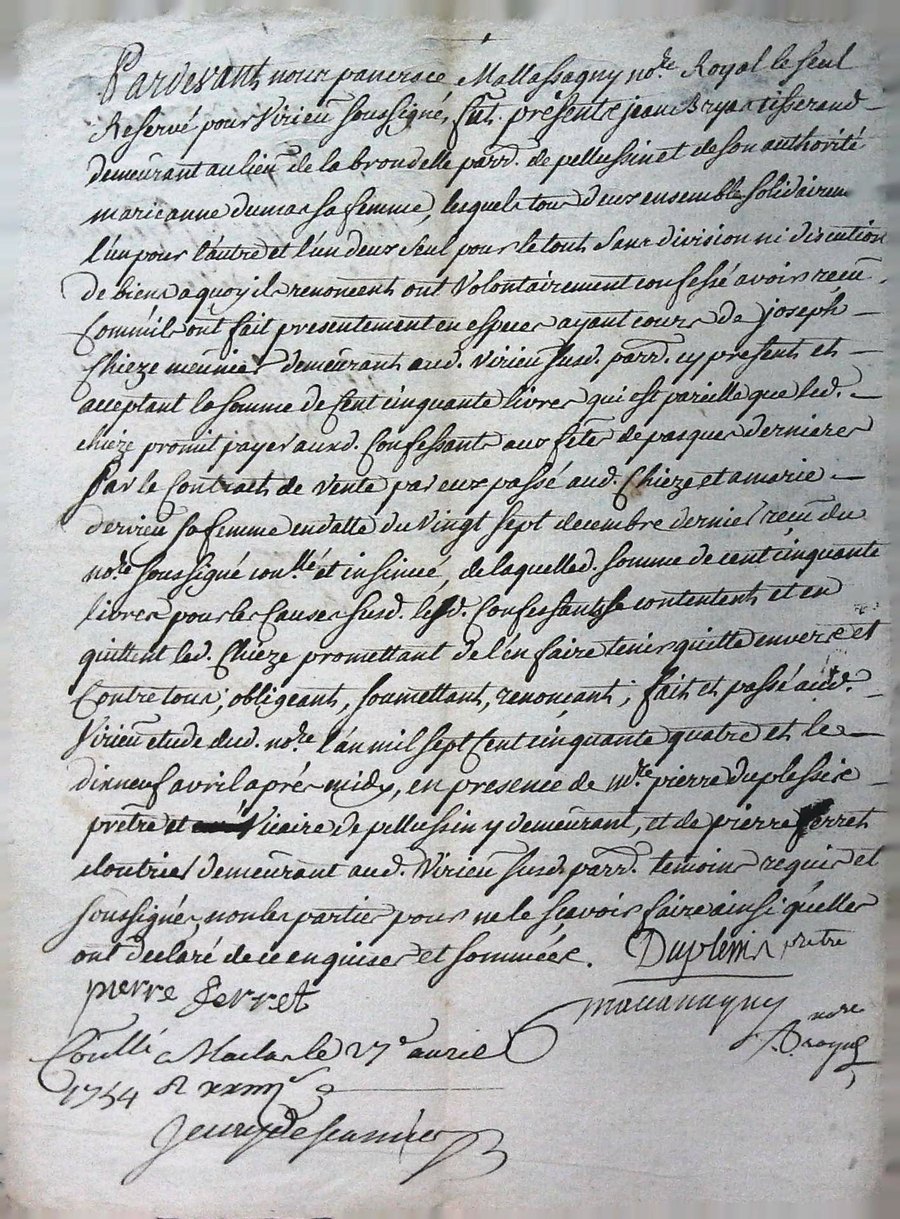 Pardevant nous pancrace Mallassagny no.re Royal le seul
Reservé pour Virieu soussigné, fut présents jean Bryas tisserand
demeurant au lieu de la brondelle parr. de pellussin et de son authorité
marie anne dumas sa femme, lesquels tous deux ensemble solidairem
l'un pour l'autre et l'un deux seul pour le tout sans division ni discution
de biens a quoy ils renoncent ont Volontairement confessé avoir receu
Comm'ils ont fait presentement en especes ayant cours de joseph
Chieze meunier demeurant aud. Virieu susd. parr. cy present et
acceptant la somme de Cent cinquante livres qui est pareille que led.
chieze promit payer auxd. Confessants aux fêtes de pasques dernieres
Par le Contract de vente par eux passé aud. Chieze et a marie
dervieu sa femme en datte du vingt sept decembre dernier receu du
no.re soussigné con.llé et insinué, de laquelled. somme de cent cinquante
livres pour les Causes susd. lesd. Confessants se contentent et en
quittent led. Chieze promettant de l'en faire tenir quitte envers et
Contre tous; obligeant, soumettant, renonçant; fait et passé aud.
Virieu etude dud. no.re l'an mil sept Cent cinquante quatre et le
dixneuf avril aprés midy, en presence de m.re pierre duplessis
prêtre et Vicaire de pellussin y demeurant, et de pierre ferret
cloutrier demeurant aud. Virieu susd. parr. temoins requis et
soussignés, non les parties pour ne le scavoir faire ainsi qu'elles
ont declaré de ce enquises et sommées. Duplessis prêtre
pierre ferret
Mallassagny
no.re
Royal
Con.llé a Maclas le 27e avril
1754